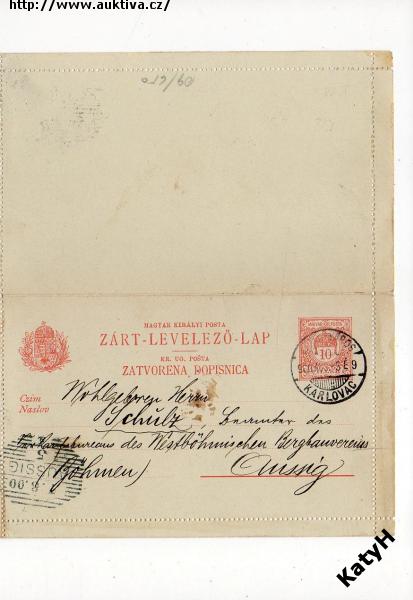 http://www.auktiva.cz/
MAGYAR KIRÁLYI POSTA
ZÁRT-LEVELEZŐ-LAP
KR. UG. POŠTA
ZATVORENA DOPISNICA
10
KARLOVAC
Czim
Naslov
Wohlgeboren Herrn
Schulz, Beamter des
Verkaufsbureaus des Westböhmischen Bergbauvereins
(Böhmen) Aussig
KatyH